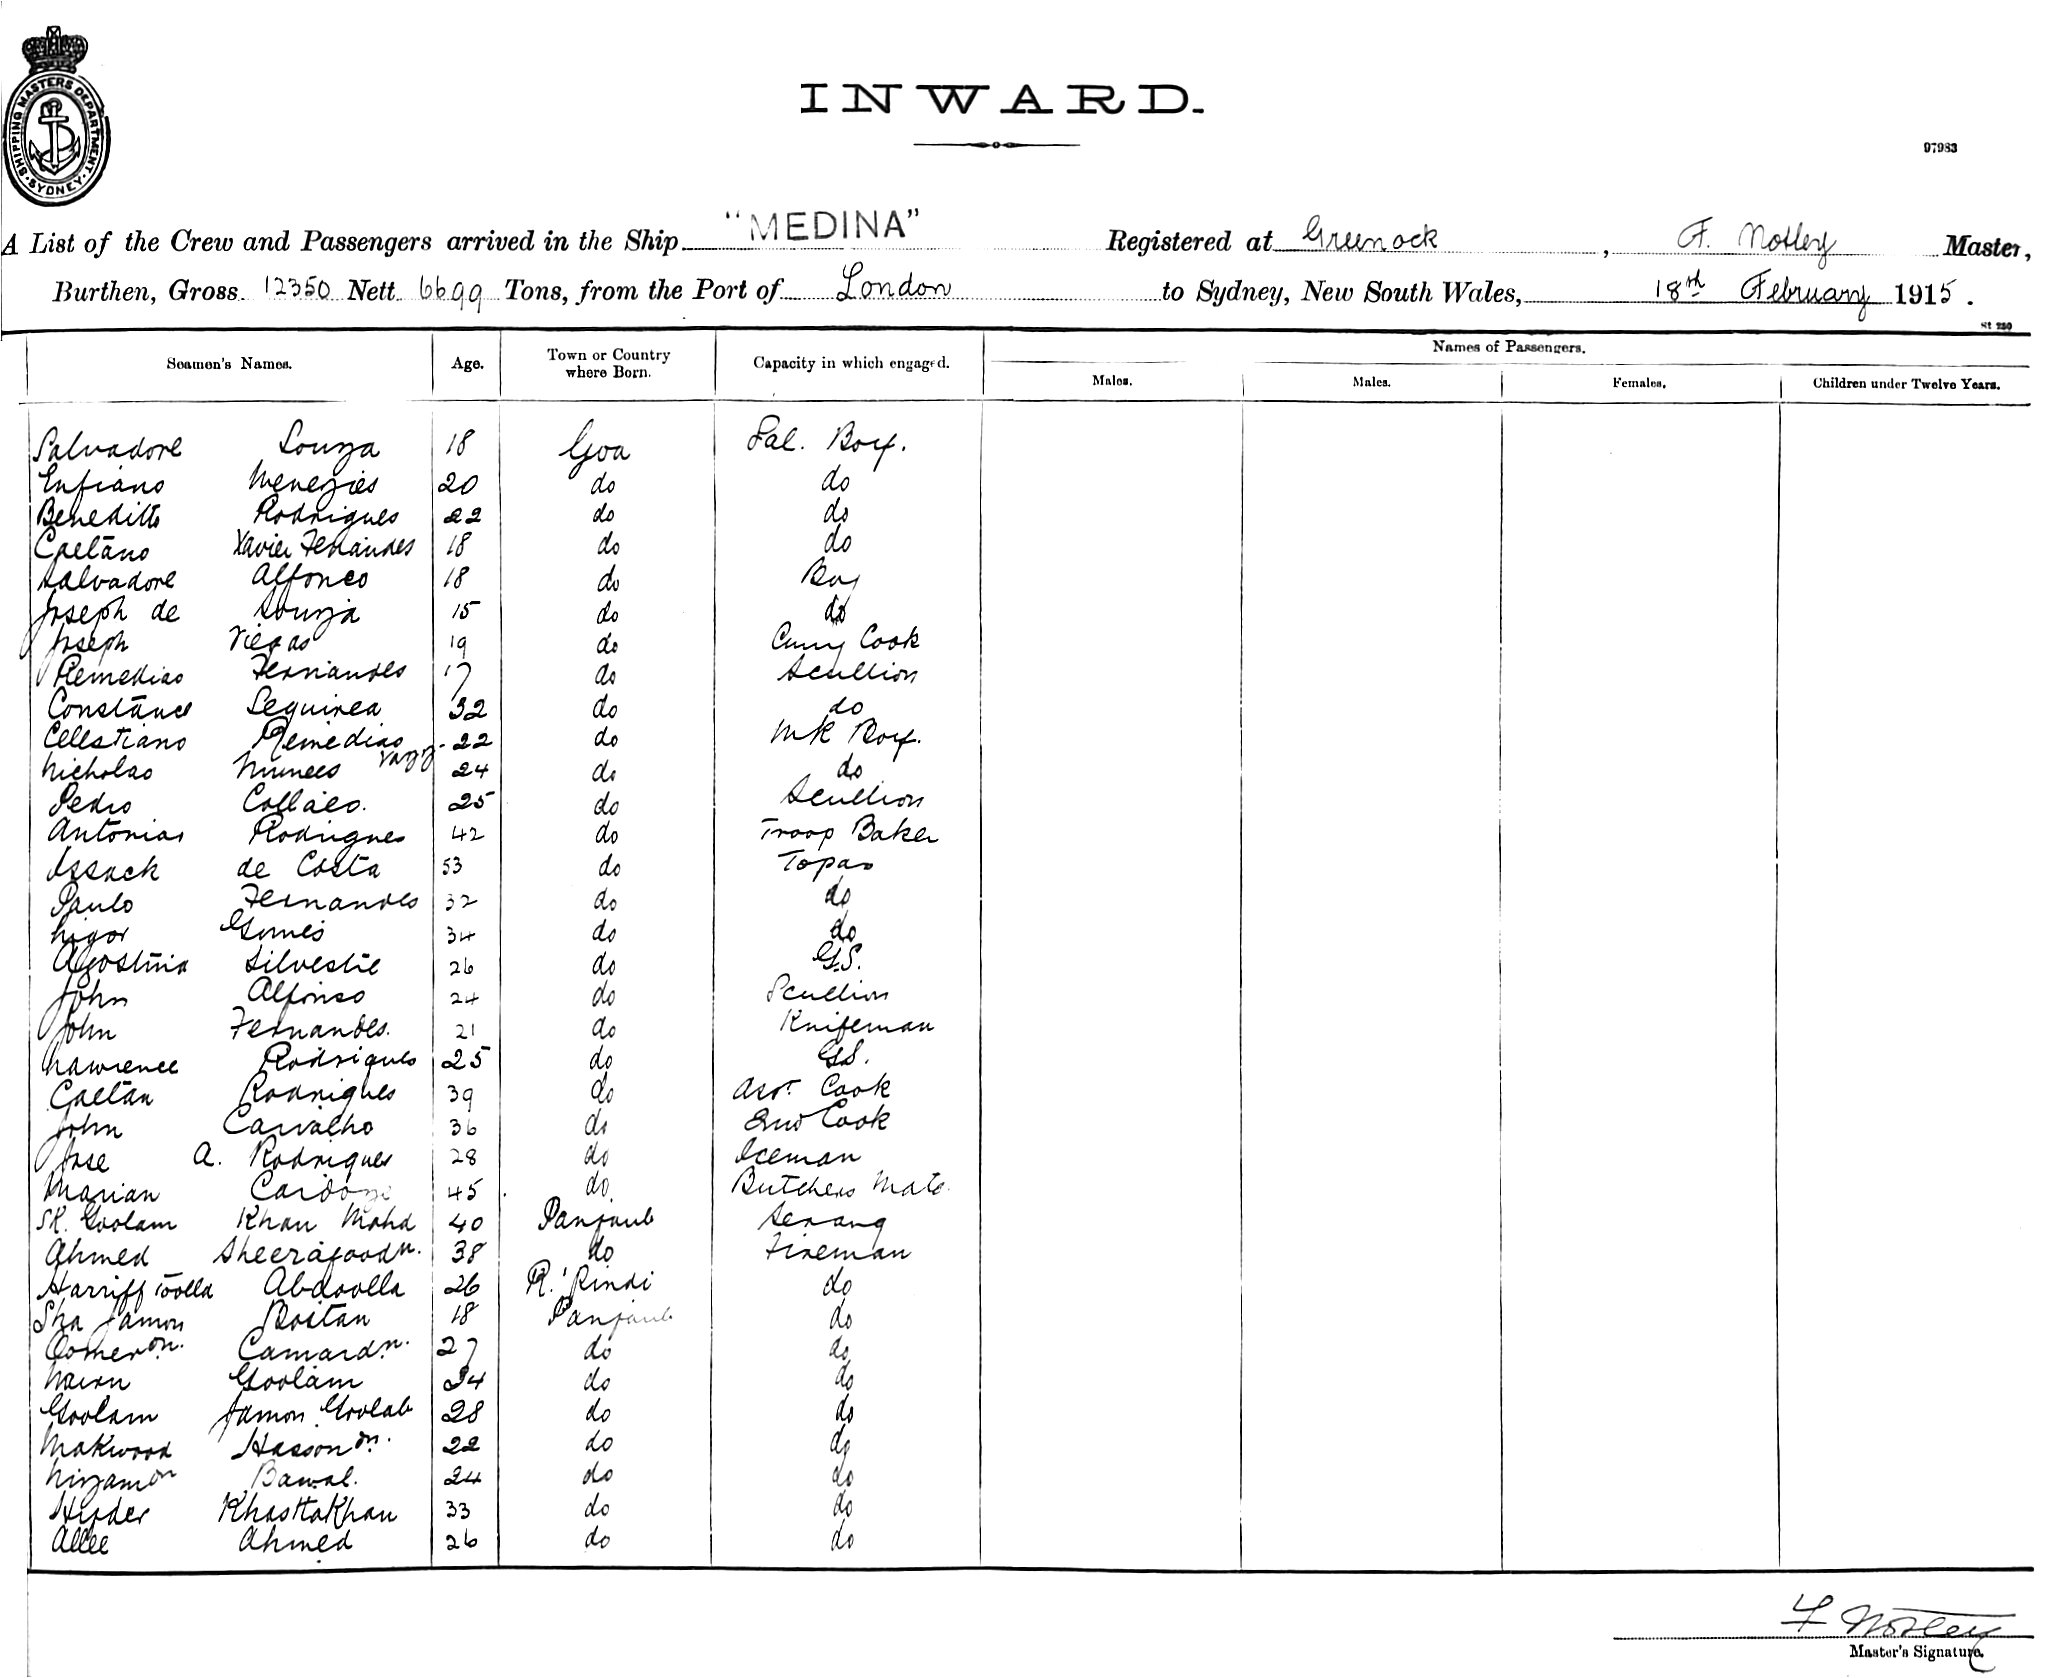 SHIPPING MASTERS DEPARTMENT. SYDNEY.
INWARD.
97983
A List of the Crew and Passengers arrived in the Ship "MEDINA" Registered at Greenock, F. Notley Master,
Burthen, Gross 12350 Nett 6699 Tons, from the Port of London to Sydney, New South Wales, 18th February 1915.
St 250
Seamen's Names. Age. Town or Country where Born. Capacity in which engaged. Names of Passengers.
Males. Males. Females. Children under Twelve Years.
Salvadore Souza 18 Goa Sal. Boy.
Menezies 20 do do
Beneditto Rodrigues 22 do do
Caetano Xavier Fernandes 18 do do
Salvadore Alfonco 18 do Boy
Joseph de Souza 15 do do
Joseph Viegas 19 do Curry Cook
Remedias Fernandes 17 do Scullion
Constance Sequirea 32 do do
Celestiano Remedias Vazz 22 do Mk Boy.
Nicholas Nunees 24 do do
Pedro Collaco. 25 do Scullion
Antonias Rodrigues 42 do Troop Baker
Issack de Costa 53 do Topas
Paulo Fernandes 32 do do
Ligor Gomes 34 do do
Agostina Silvestre 26 do G.S.
John Alfonso 24 do Scullion
John Fernandes. 21 do Knifeman
Lawrence Rodrigues 25 do G.S.
Caetan Rodrigues 39 do Asst. Cook
John Carvalho 36 do Cook
Jose A. Rodrigues 28 do Iceman
Marian Cardozo 45 do Butchers Mate.
SK. Goolam Khan Mohd 40 Panjaub Serang
Ahmed Sheerafoodn. 38 do Fireman
Harriff Toolla Abdoolla 26 R. Pindi do
Sha Jamon Bostan 18 Panjaub do
Oomerdn. Camardn. 27 do do
Goolam 34 do do
Goolam Jamon Goolab 28 do do
Makwood Hassondn. 22 do do
Nizamdn Bawal. 24 do do
Hyder Khastakhan 33 do do
Allee Ahmed 26 do do
F Notley
Master's Signature.